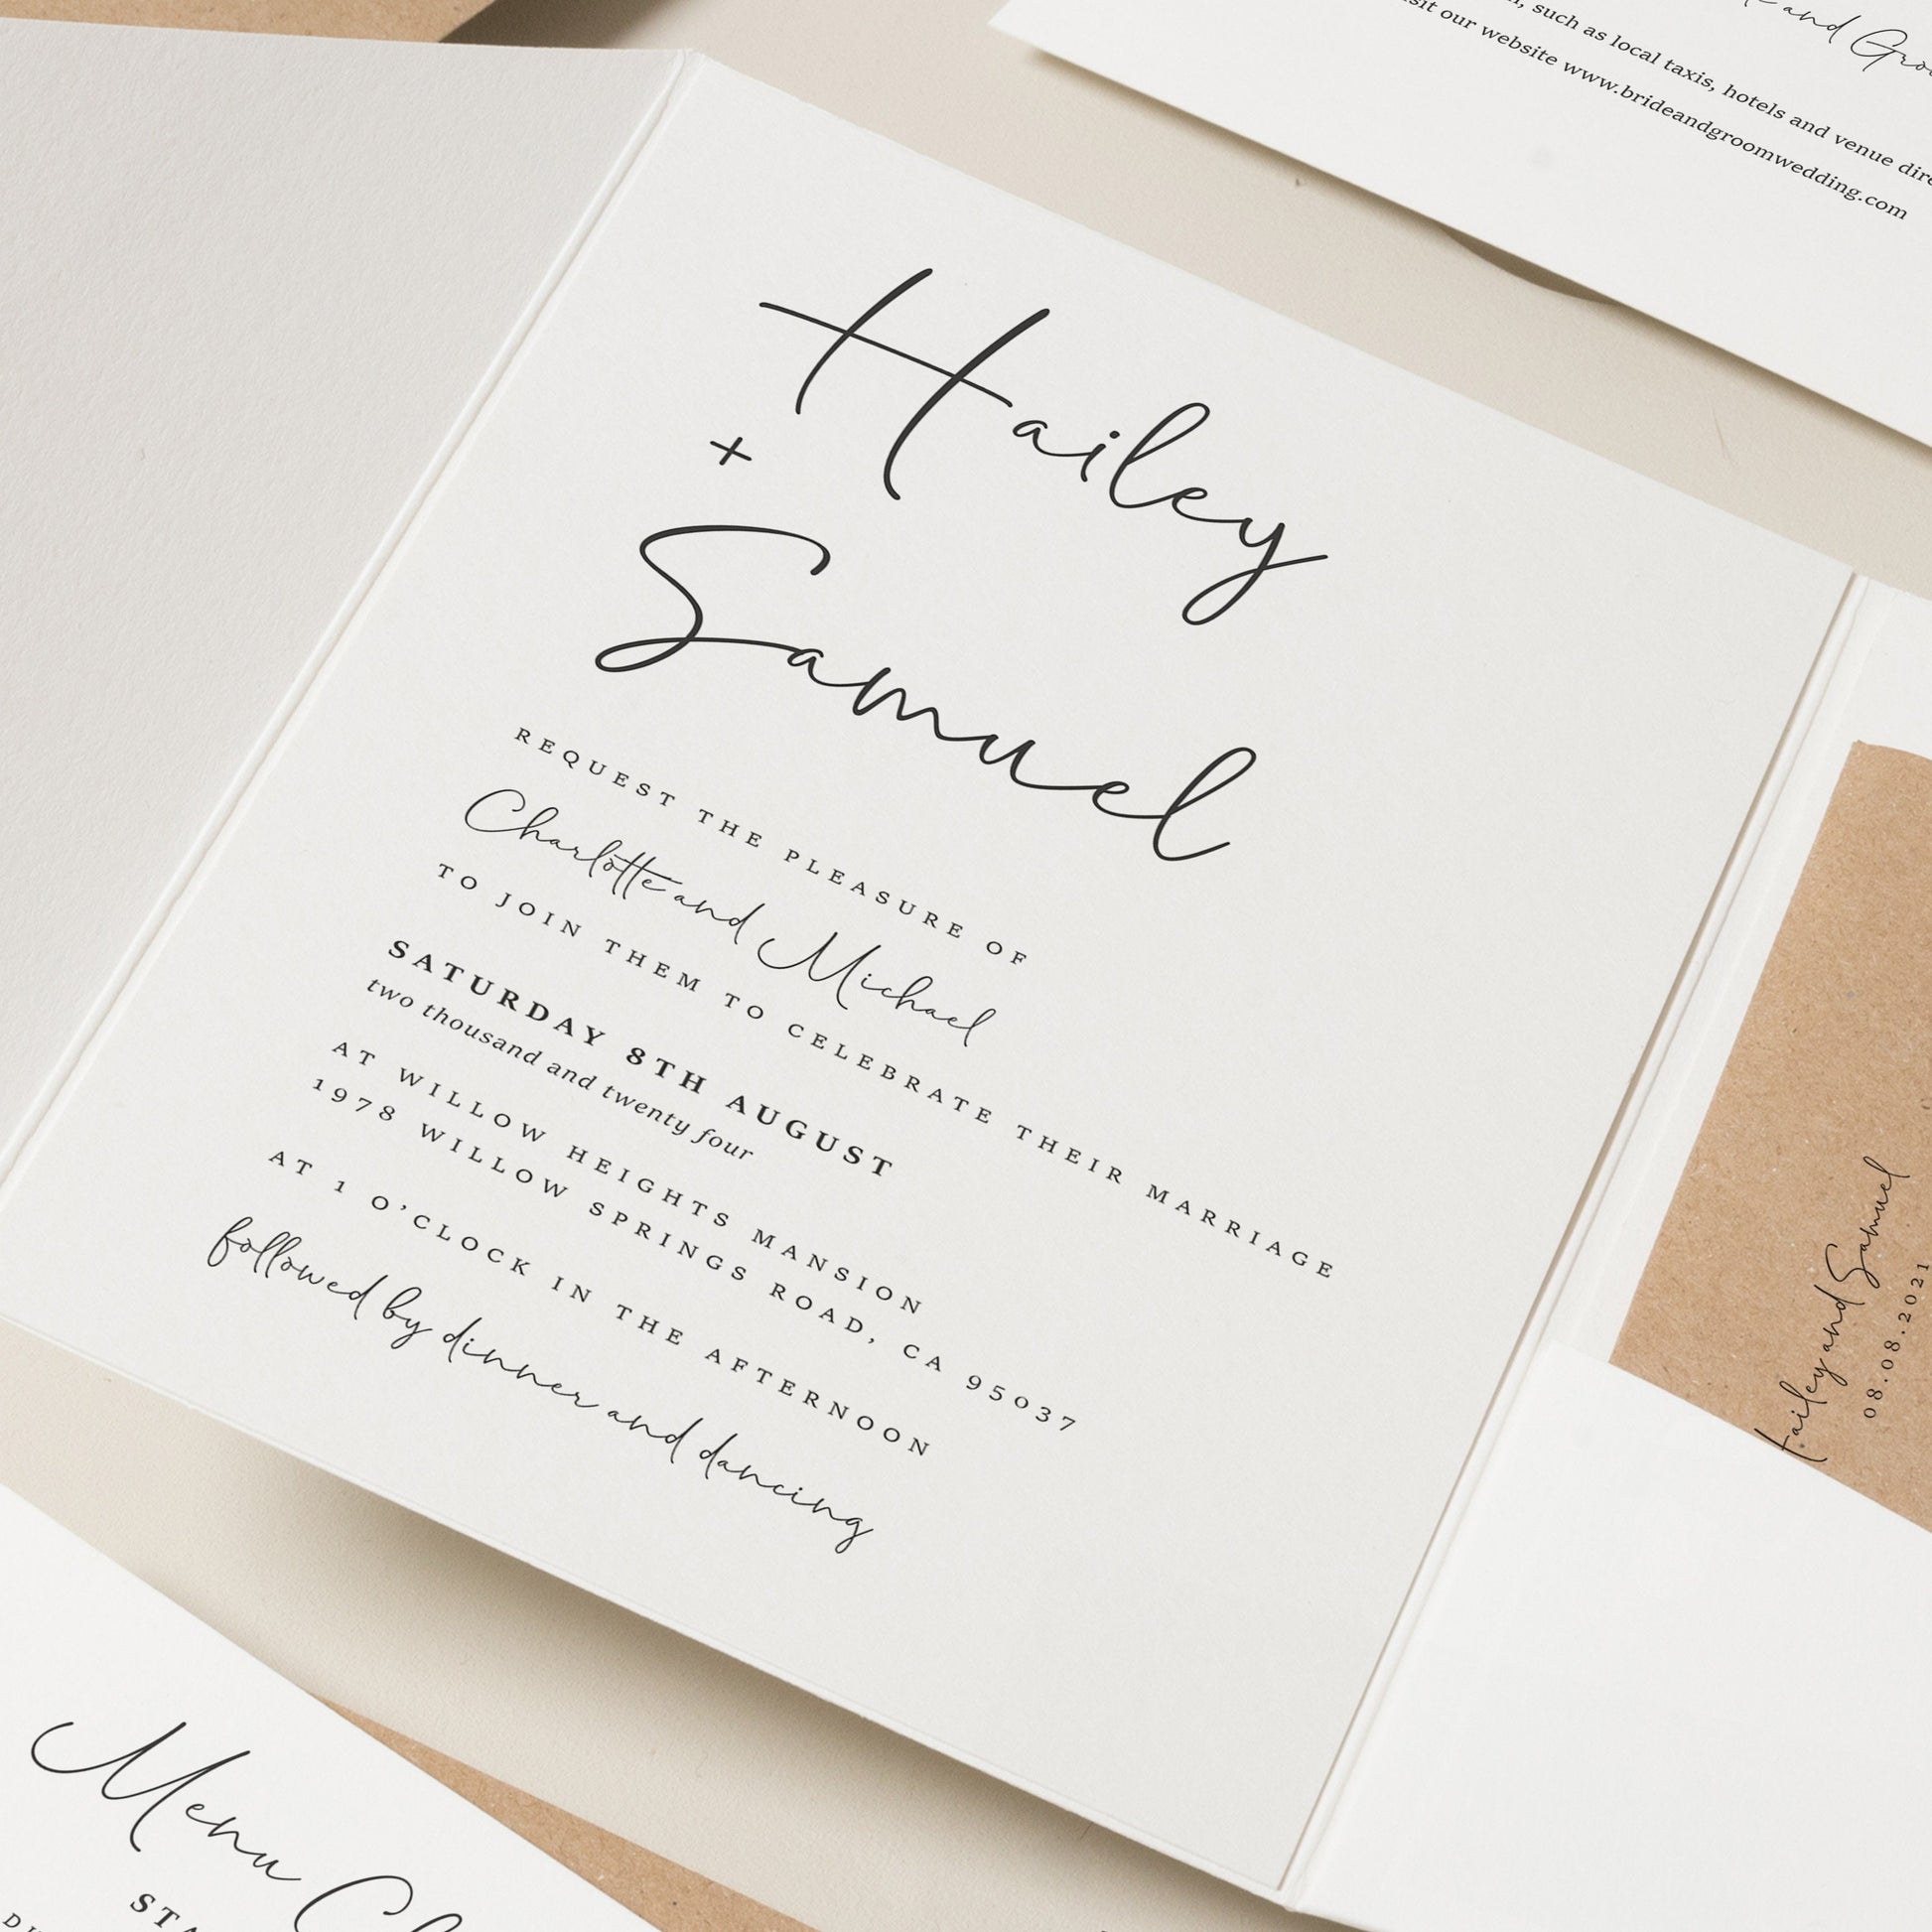 and
such as local taxis, hotels and venue
our website www.brideandgroomwedding.com
Hailey
+
Samuel
REQUEST THE PLEASURE OF
Charlotte and Michael
TO JOIN THEM TO CELEBRATE THEIR MARRIAGE
SATURDAY 8TH AUGUST
two thousand and twenty four
AT WILLOW HEIGHTS MANSION
1978 WILLOW SPRINGS ROAD, CA 95037
AT 1 O'CLOCK IN THE AFTERNOON
followed by dinner and dancing
Hailey and Samuel
08.08.2021
Menu